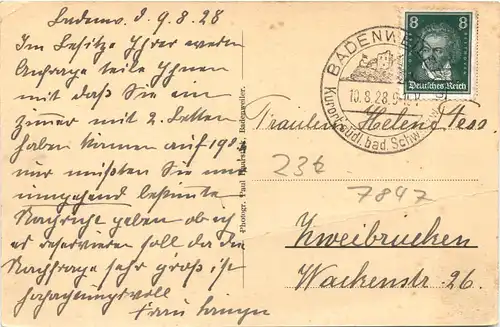 d. 9.8.28
Im Besitze Ihrer werten
Anfrage teile Ihnen
mit daß Sie ein
Zimmer mit 2 Betten
haben können auf 19.8.
nur müßten Sie mir
umgehend bestimmte
Nachricht geben ob ich
es reservieren soll da die
Nachfrage sehr groß ist
Hochachtungsvoll
Frau
Photogr. Paul Badenweiler.
BADENWEILER
10.8.28.
Kurort südl. bad. Schwarzwald
8 8
Deutsches Reich
Fräulein Helene Hess.
232
7847
Zweibrücken
Wackenstr. 26.